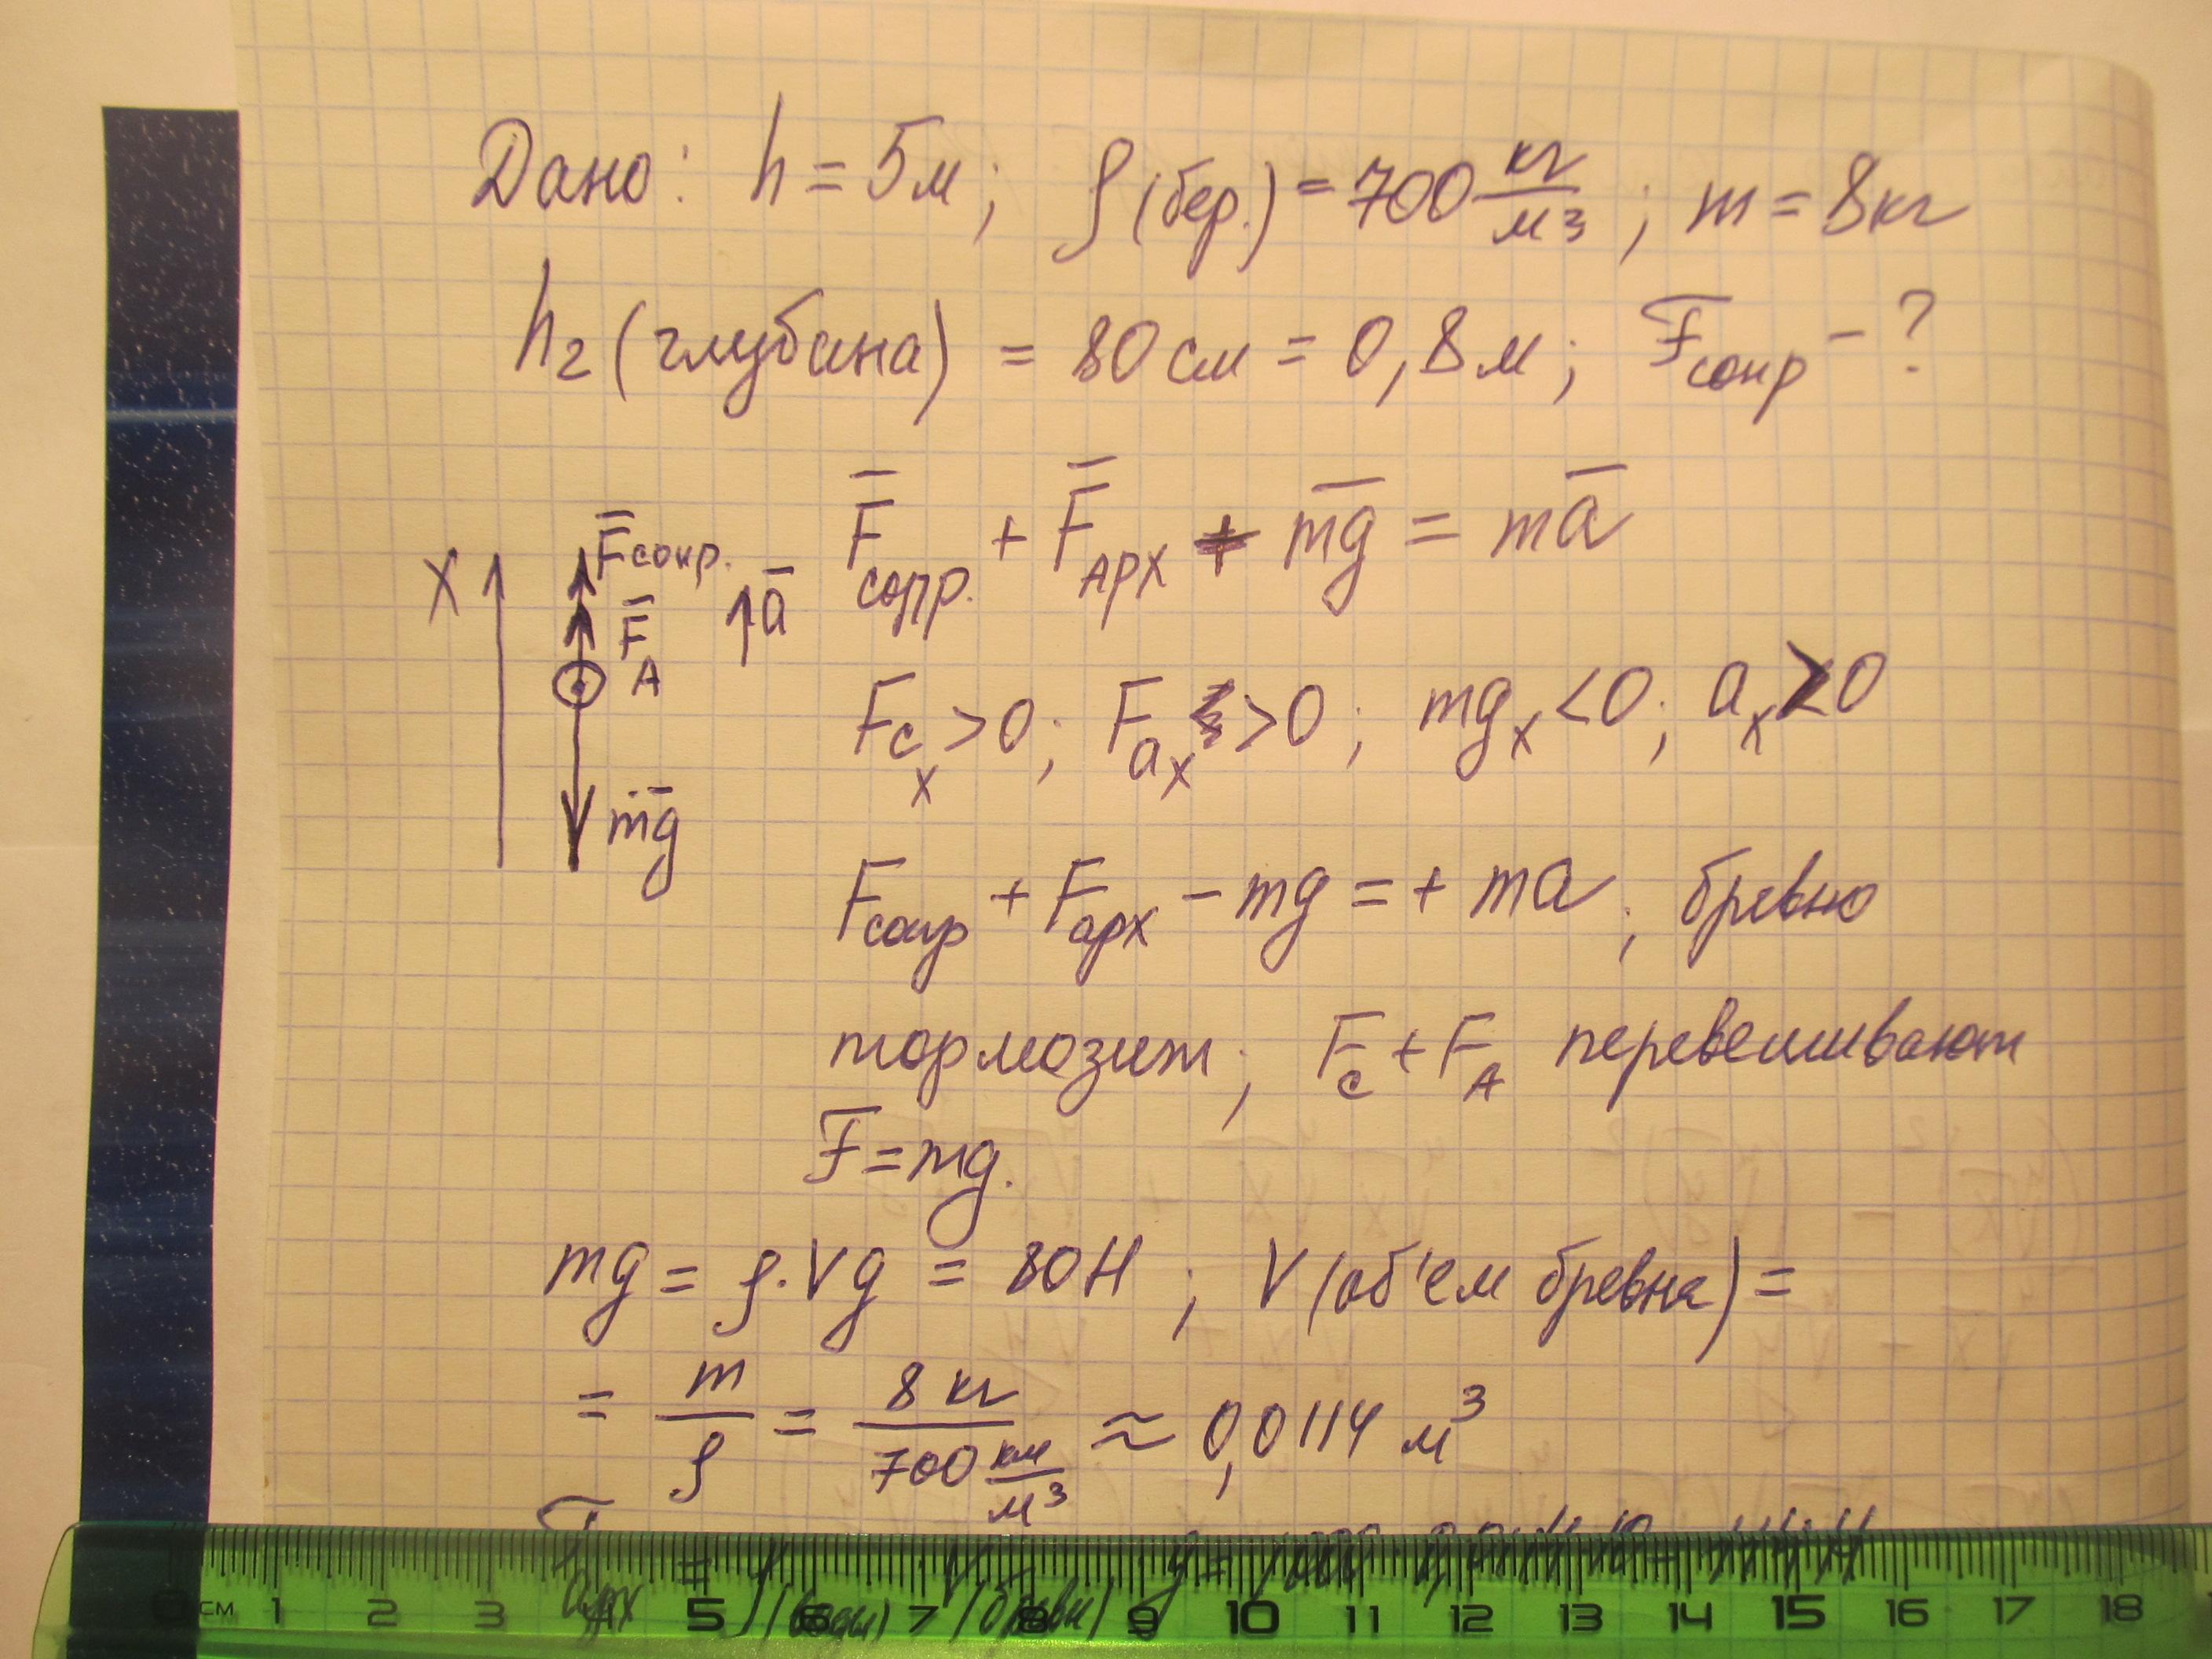 Дано: h = 5м; ρ(бер.) = 700 кг/м³; m = 8кг
h₂ (глубина) = 80 см = 0,8 м; Fсопр - ?
F̅сопр. + F̅АРХ + m̅g̅ = ma̅
X F̅сопр. F̅А a̅ m̅g̅
Fсₓ > 0; Fаₓ > 0; mgₓ < 0; aₓ > 0
Fсопр + Fарх - mg = + ma; бревно
тормозит; Fс + FА перевешивают
F = mg.
mg = ρ·Vg = 80 Н; V (об'ем бревна) =
= m/ρ = 8 кг / 700 км/м³ ≈ 0,0114 м³
Fарх = ρ(воды) V(бревн) g = 1000 · 0,0114 · 10 = 114 Н
0 см 1 2 3 5 6 7 8 9 10 11 12 13 14 15 16 17 18